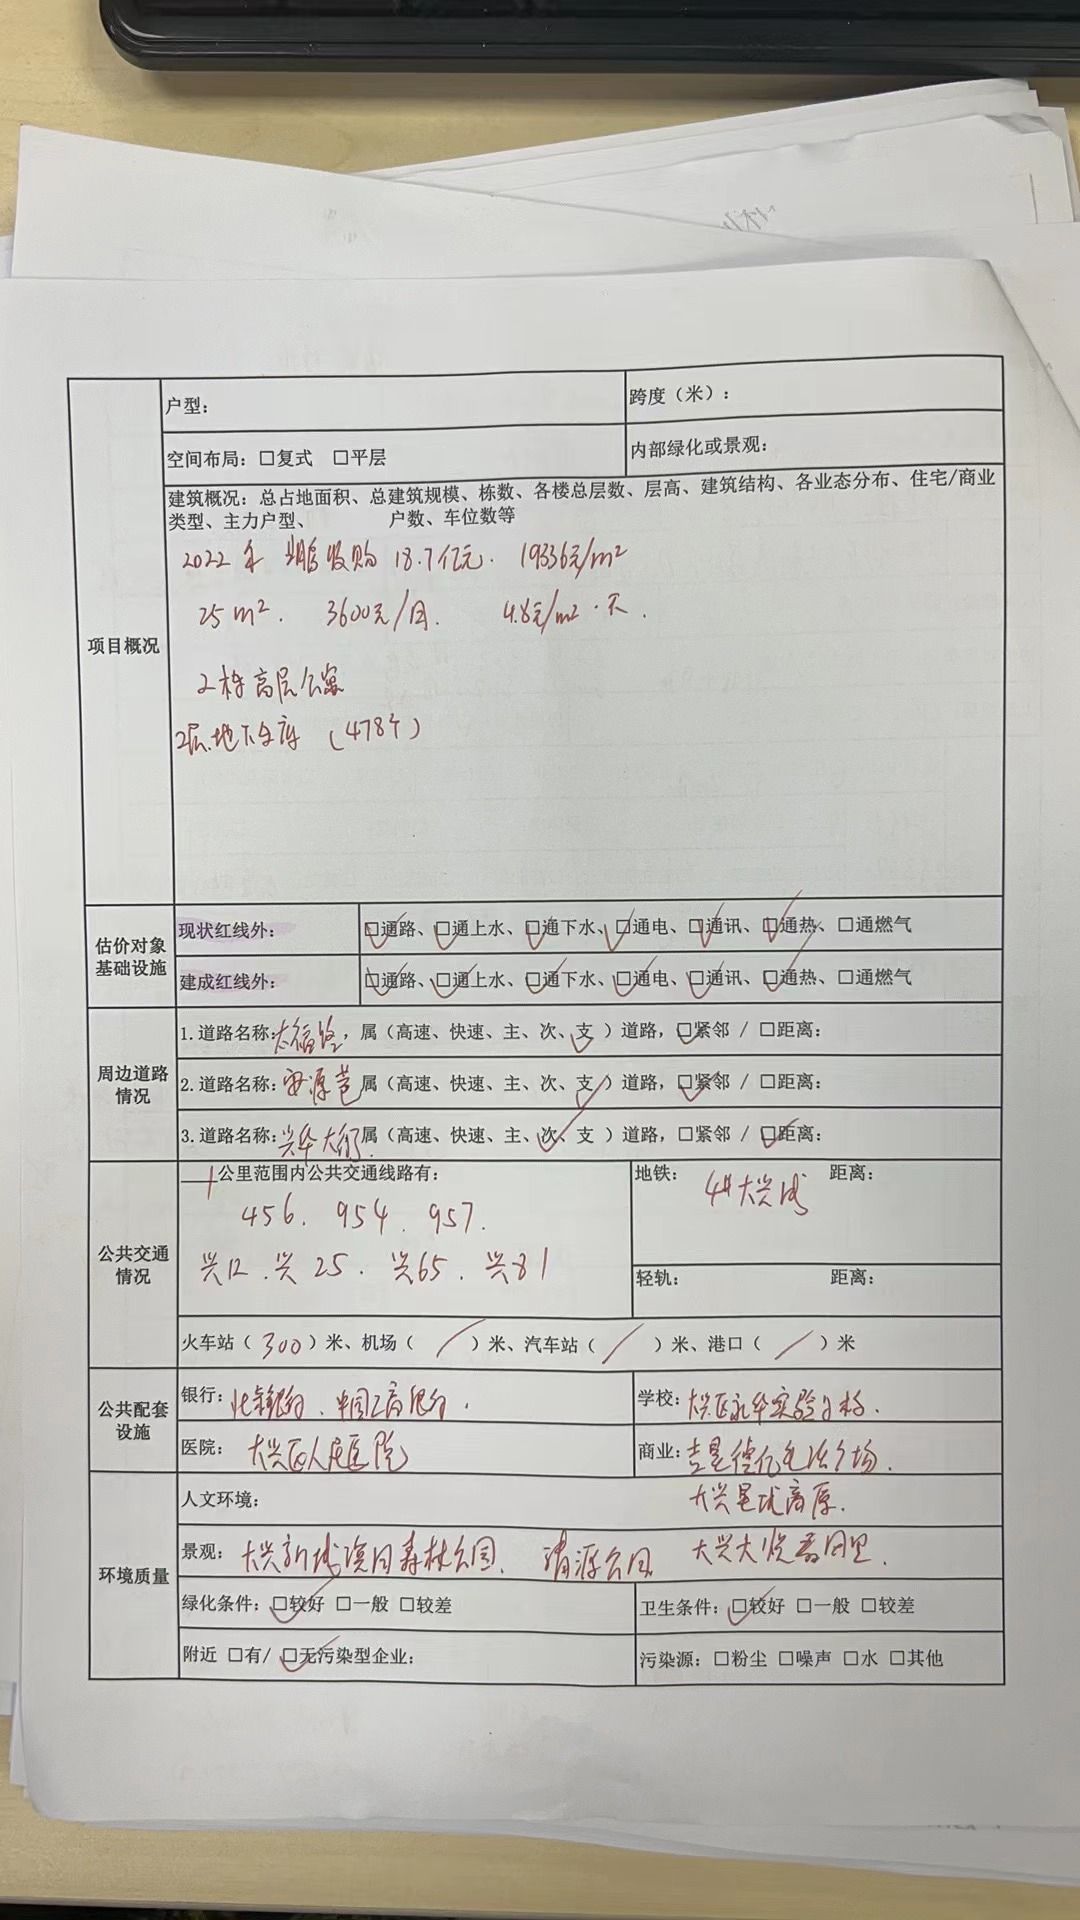 户型：
跨度（米）：
空间布局：□复式 □平层
内部绿化或景观：
项目概况
建筑概况：总占地面积、总建筑规模、栋数、各楼总层数、层高、建筑结构、各业态分布、住宅/商业
类型、主力户型、 户数、车位数等
2022年 收购 18.7亿元. 19336元/m²
25m². 3600元/月. 4.8元/m²·天.
2栋高层公寓
2层地下车库（478个）
估价对象
基础设施
现状红线外：
☑通路、☑通上水、☑通下水、☑通电、☑通讯、☑通热、□通燃气
建成红线外：
☑通路、☑通上水、☑通下水、☑通电、☑通讯、☑通热、□通燃气
周边道路
情况
1.道路名称：太福路，属（高速、快速、主、次、支）道路，☑紧邻 / □距离：
2.道路名称： 属（高速、快速、主、次、支）道路，☑紧邻 / □距离：
3.道路名称：兴华大街属（高速、快速、主、次、支）道路，□紧邻 / ☑距离：
公共交通
情况
1公里范围内公共交通线路有：
456. 954. 957.
兴12. 兴25. 兴65. 兴81
地铁： 4#大兴线 距离：
轻轨： 距离：
火车站（300）米、机场（／）米、汽车站（／）米、港口（／）米
公共配套
设施
银行：北京银行、中国工商银行.
学校：大兴区永华实验学校.
医院：大兴区人民医院
商业： 生活广场.
大兴星城商厦.
大兴大悦春风里.
环境质量
人文环境：
景观：大兴新城滨河森林公园、清源公园
绿化条件：☑较好 □一般 □较差
卫生条件：☑较好 □一般 □较差
附近 □有/ ☑无污染型企业：
污染源：□粉尘 □噪声 □水 □其他